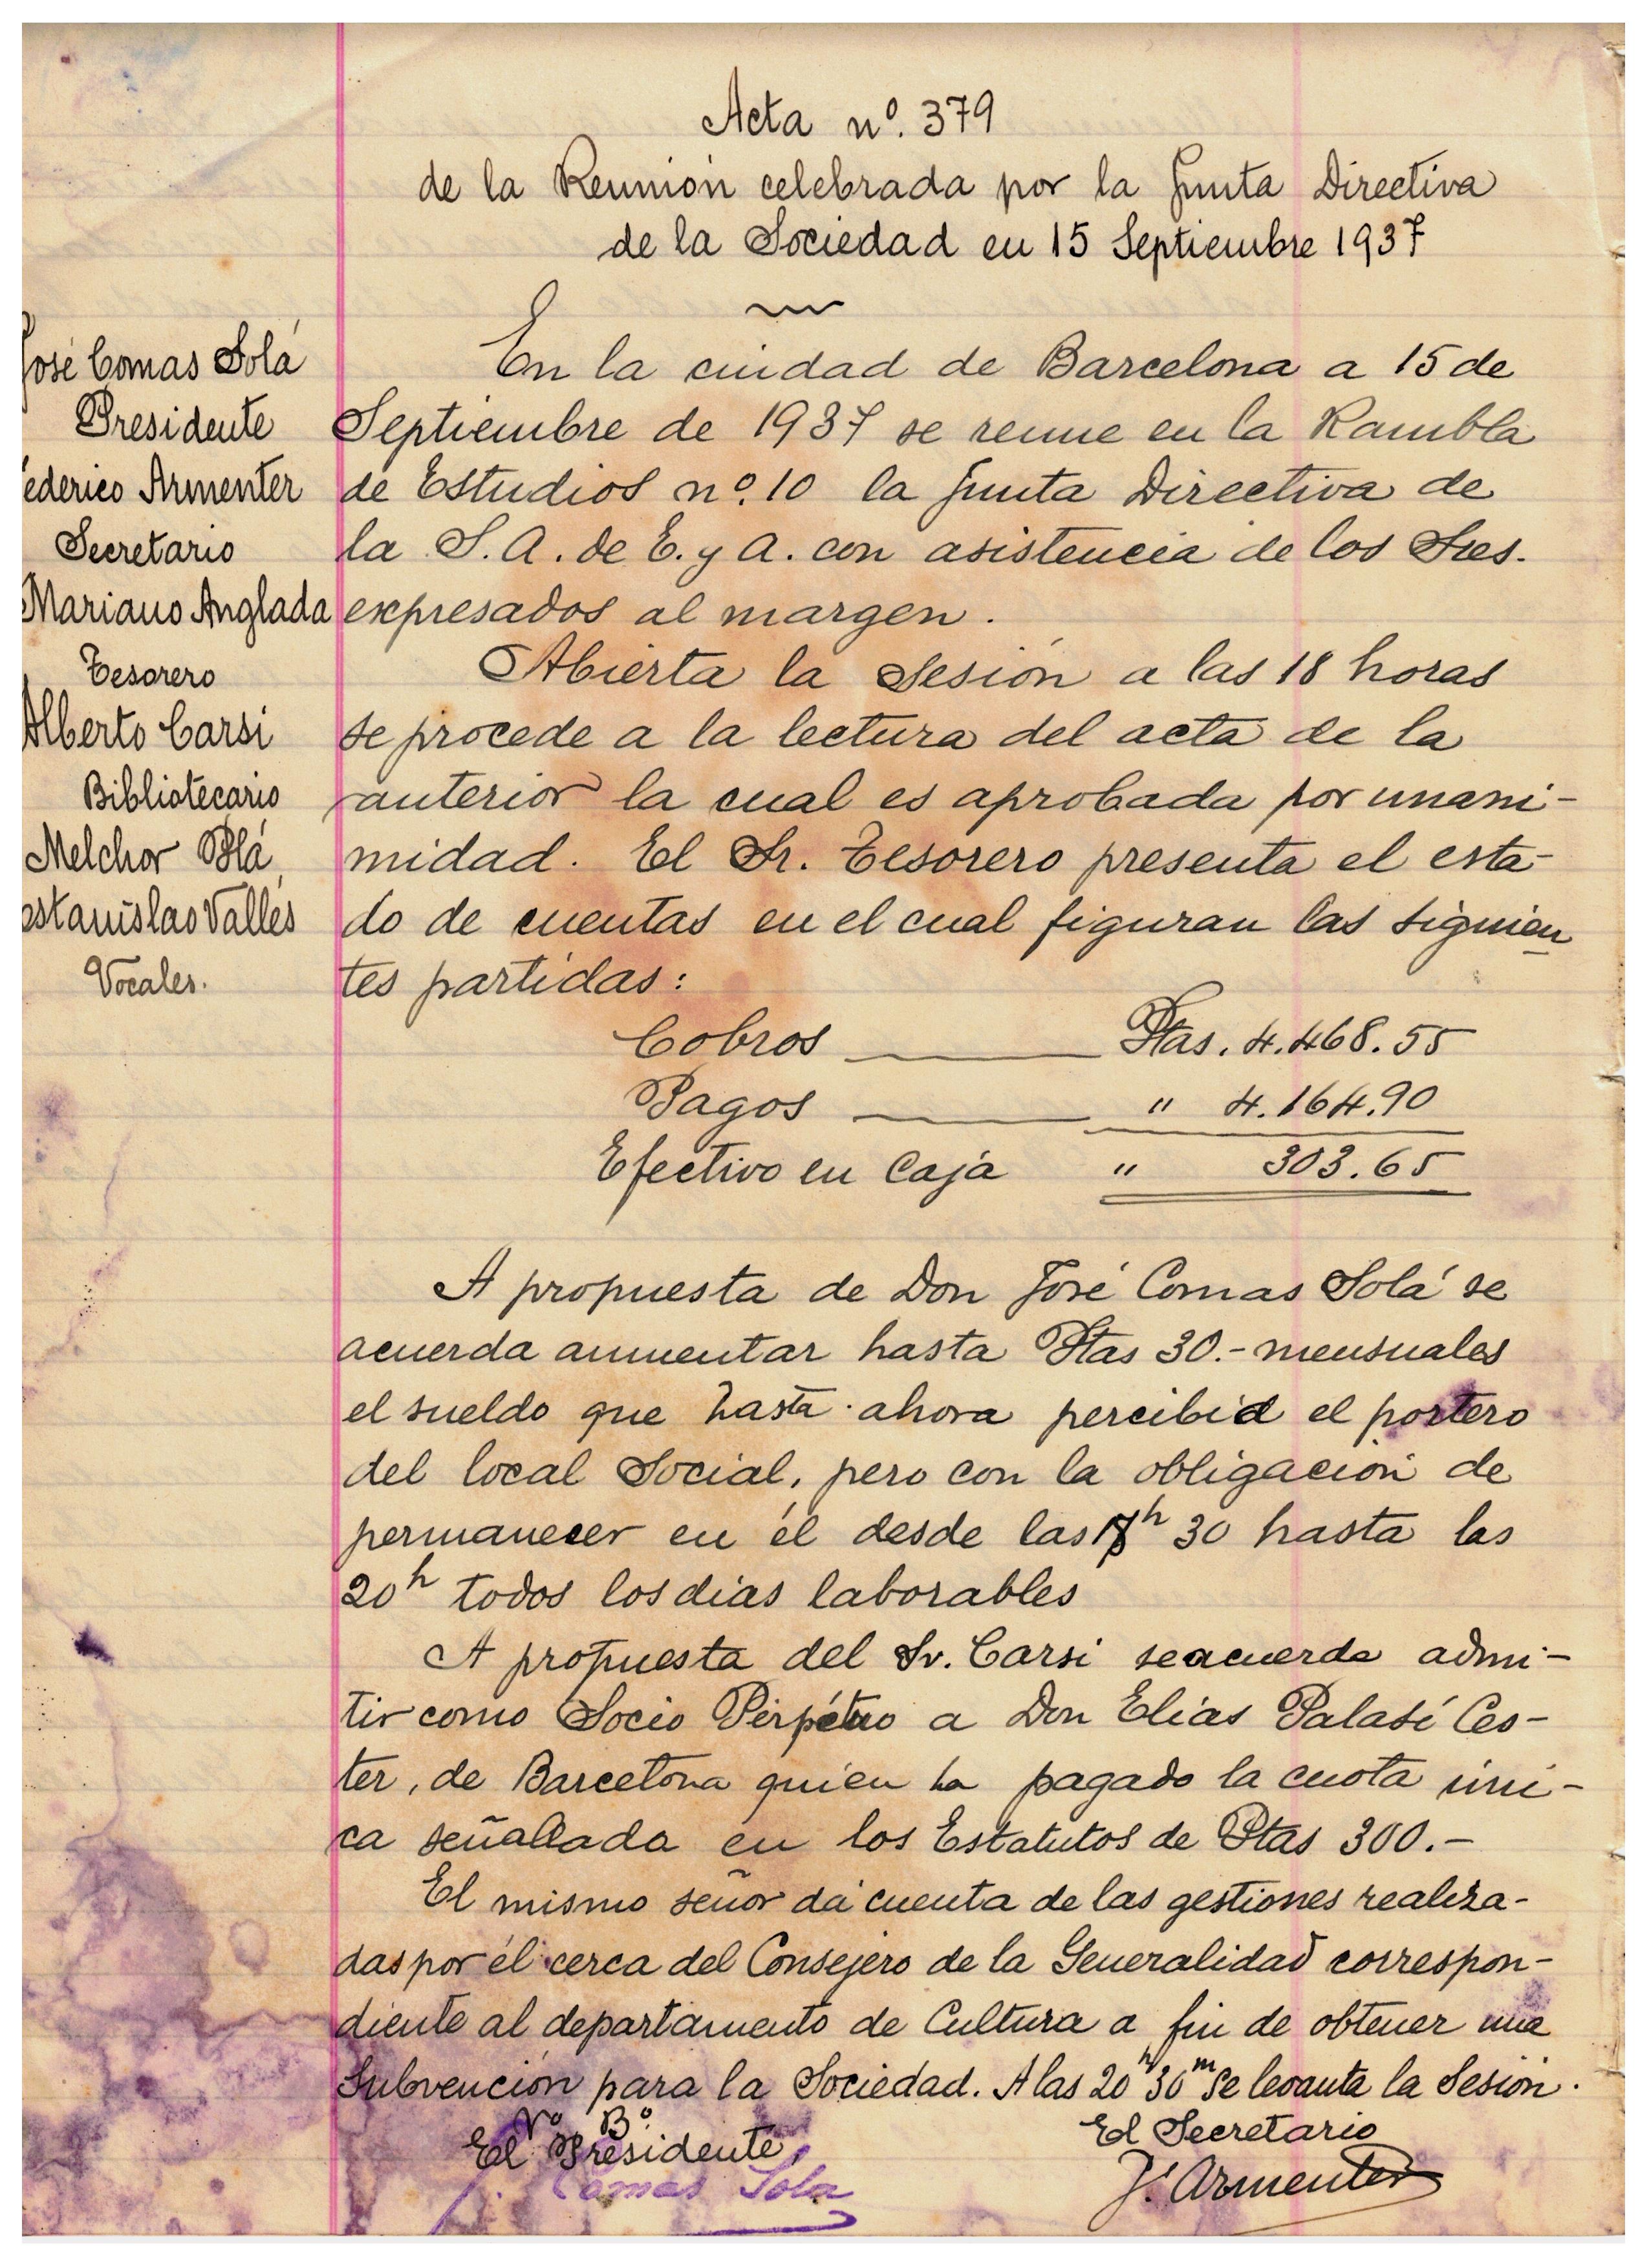 Acta nº. 379
de la Reunión celebrada por la Junta Directiva
de la Sociedad en 15 Septiembre 1937
José Comas Solá
Presidente
ederico Armenter
Secretario
Mariano Anglada
Tesorero
Alberto Carsi
Bibliotecario
Melchor Blá
Estanislao Vallés
Vocales.
En la ciudad de Barcelona a 15 de
Septiembre de 1937 se reune en la Rambla
de Estudios nº. 10 la Junta Directiva de
la S. A. de E. y A. con asistencia de los Sres.
expresados al margen.
Abierta la Sesión a las 18 horas
se procede a la lectura del acta de la
anterior la cual es aprobada por unani-
midad. El Sr. Tesorero presenta el esta-
do de cuentas en el cual figuran las siguien
tes partidas:
Cobros Ptas. 4.468.55
Pagos " 4.164.90
Efectivo en Caja " 303.65
A propuesta de Don José Comas Solá se
acuerda aumentar hasta Ptas 30.- mensuales
el sueldo que hasta ahora percibía el portero
del local Social, pero con la obligación de
permanecer en él desde las h 30 hasta las
20h todos los dias laborables
A propuesta del Sr. Carsi se acuerda admi-
tir como Socio Perpétuo a Don Elías Palasí Ces-
ter, de Barcelona quien ha pagado la cuota úni-
ca señalada en los Estatutos de Ptas 300.-
El mismo señor dá cuenta de las gestiones realiza-
das por él cerca del Consejero de la Generalidad correspon-
diente al departamento de Cultura a fin de obtener una
Subvención para la Sociedad. A las 20h 30m se levanta la Sesión.
Vº Bº
El Presidente,
J. Comas Solá
El Secretario
F. Armenter